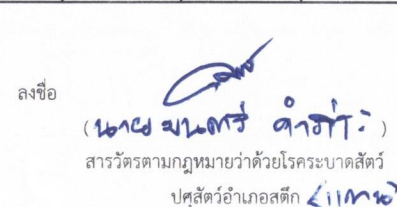 ลงชื่อ
(นายมนตรี คำภา)
สารวัตรตามกฎหมายว่าด้วยโรคระบาดสัตว์
ปศุสัตว์อำเภอสตึก